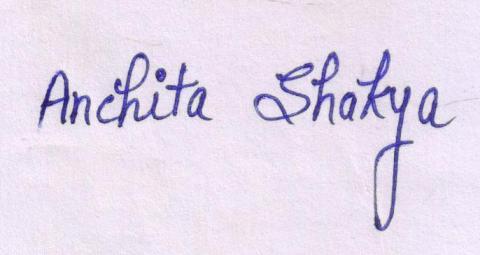 Anchita Shakya